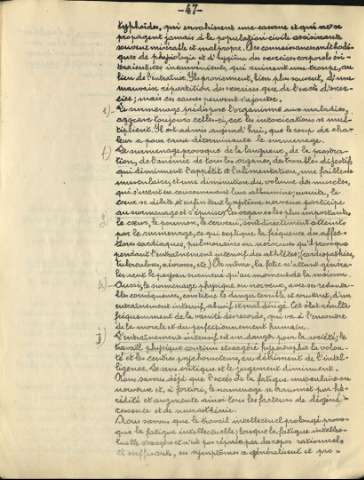 - 47 -
typhoïdes, qui envahissent une caserne et qui ne se
propagent jamais à la population civile avoisinante
souvent misérable et malpropre.
de physiologie et d'hygiène des exercices corporels
au
lieu de l'entraîner. Ils proviennent, bien plus souvent, d'une
mauvaise répartition des exercices que de l'excès d'exer-
cice; mais ces causes peuvent s'ajouter.
e) - Le surmenage prédispose l'organisme aux maladies,
aggrave toujours celles-ci, car les intoxications se mul-
tiplient. Il est admis aujourd'hui, que le coup de cha-
leur a pour cause déterminante le surmenage.
f) - Le surmenage provoque de la langueur, de la prostra-
tion, de l'anémie de tous les organes, des troubles digestifs
qui diminuent l'appétit et l'alimentation, une faiblesse
musculaire, et une diminution du volume des muscles,
le
cœur se dilate et enfin tout le système nerveux participe
au surmenage et s'épuise; les organes les plus importants
g) le cœur, le poumon, le cerveau, sont directement atteints
par le surmenage, ce qui explique la fréquence des affec-
tions cardiaques, pulmonaires ou nerveuses
pendant l'entraînement intensif des athlètes; (cardiopathies,
tuberculose, etc). De même, la folie n'atteint généra-
lement le paysan qu'au moment de la moisson.
h) - Aussi, le surmenage physique ou nerveux, avec ses redouta-
bles conséquences, constitue le danger terrible et constant, d'un
entraînement intensif, athlétique mal dirigé. Cet état résulte
fréquemment de la vanité des records, qui va à l'encontre
de la morale et du perfectionnement humain.
j) L'entraînement intensif est un danger pour la société; le
travail physique continu et exagéré hypertrophie la volon-
té et les centres psychomoteurs, au détriment de l'intel-
ligence. Le sens critique et le jugement diminuent.
Nous savons déjà que l'excès de la fatigue musculaire ou
nerveuse et, à fortiori, le surmenage se transmet par hé-
rédité et augmente ainsi tous les facteurs de dégéné-
rescence et de neurasthénie.
Nous savons que le travail intellectuel prolongé provo-
que la fatigue intellectuelle; lorsque la fatigue intellec-
tuelle s'exagère et n'est pas réparée par du repos rationnel
et suffisant, ses symptômes se généralisent et pro-